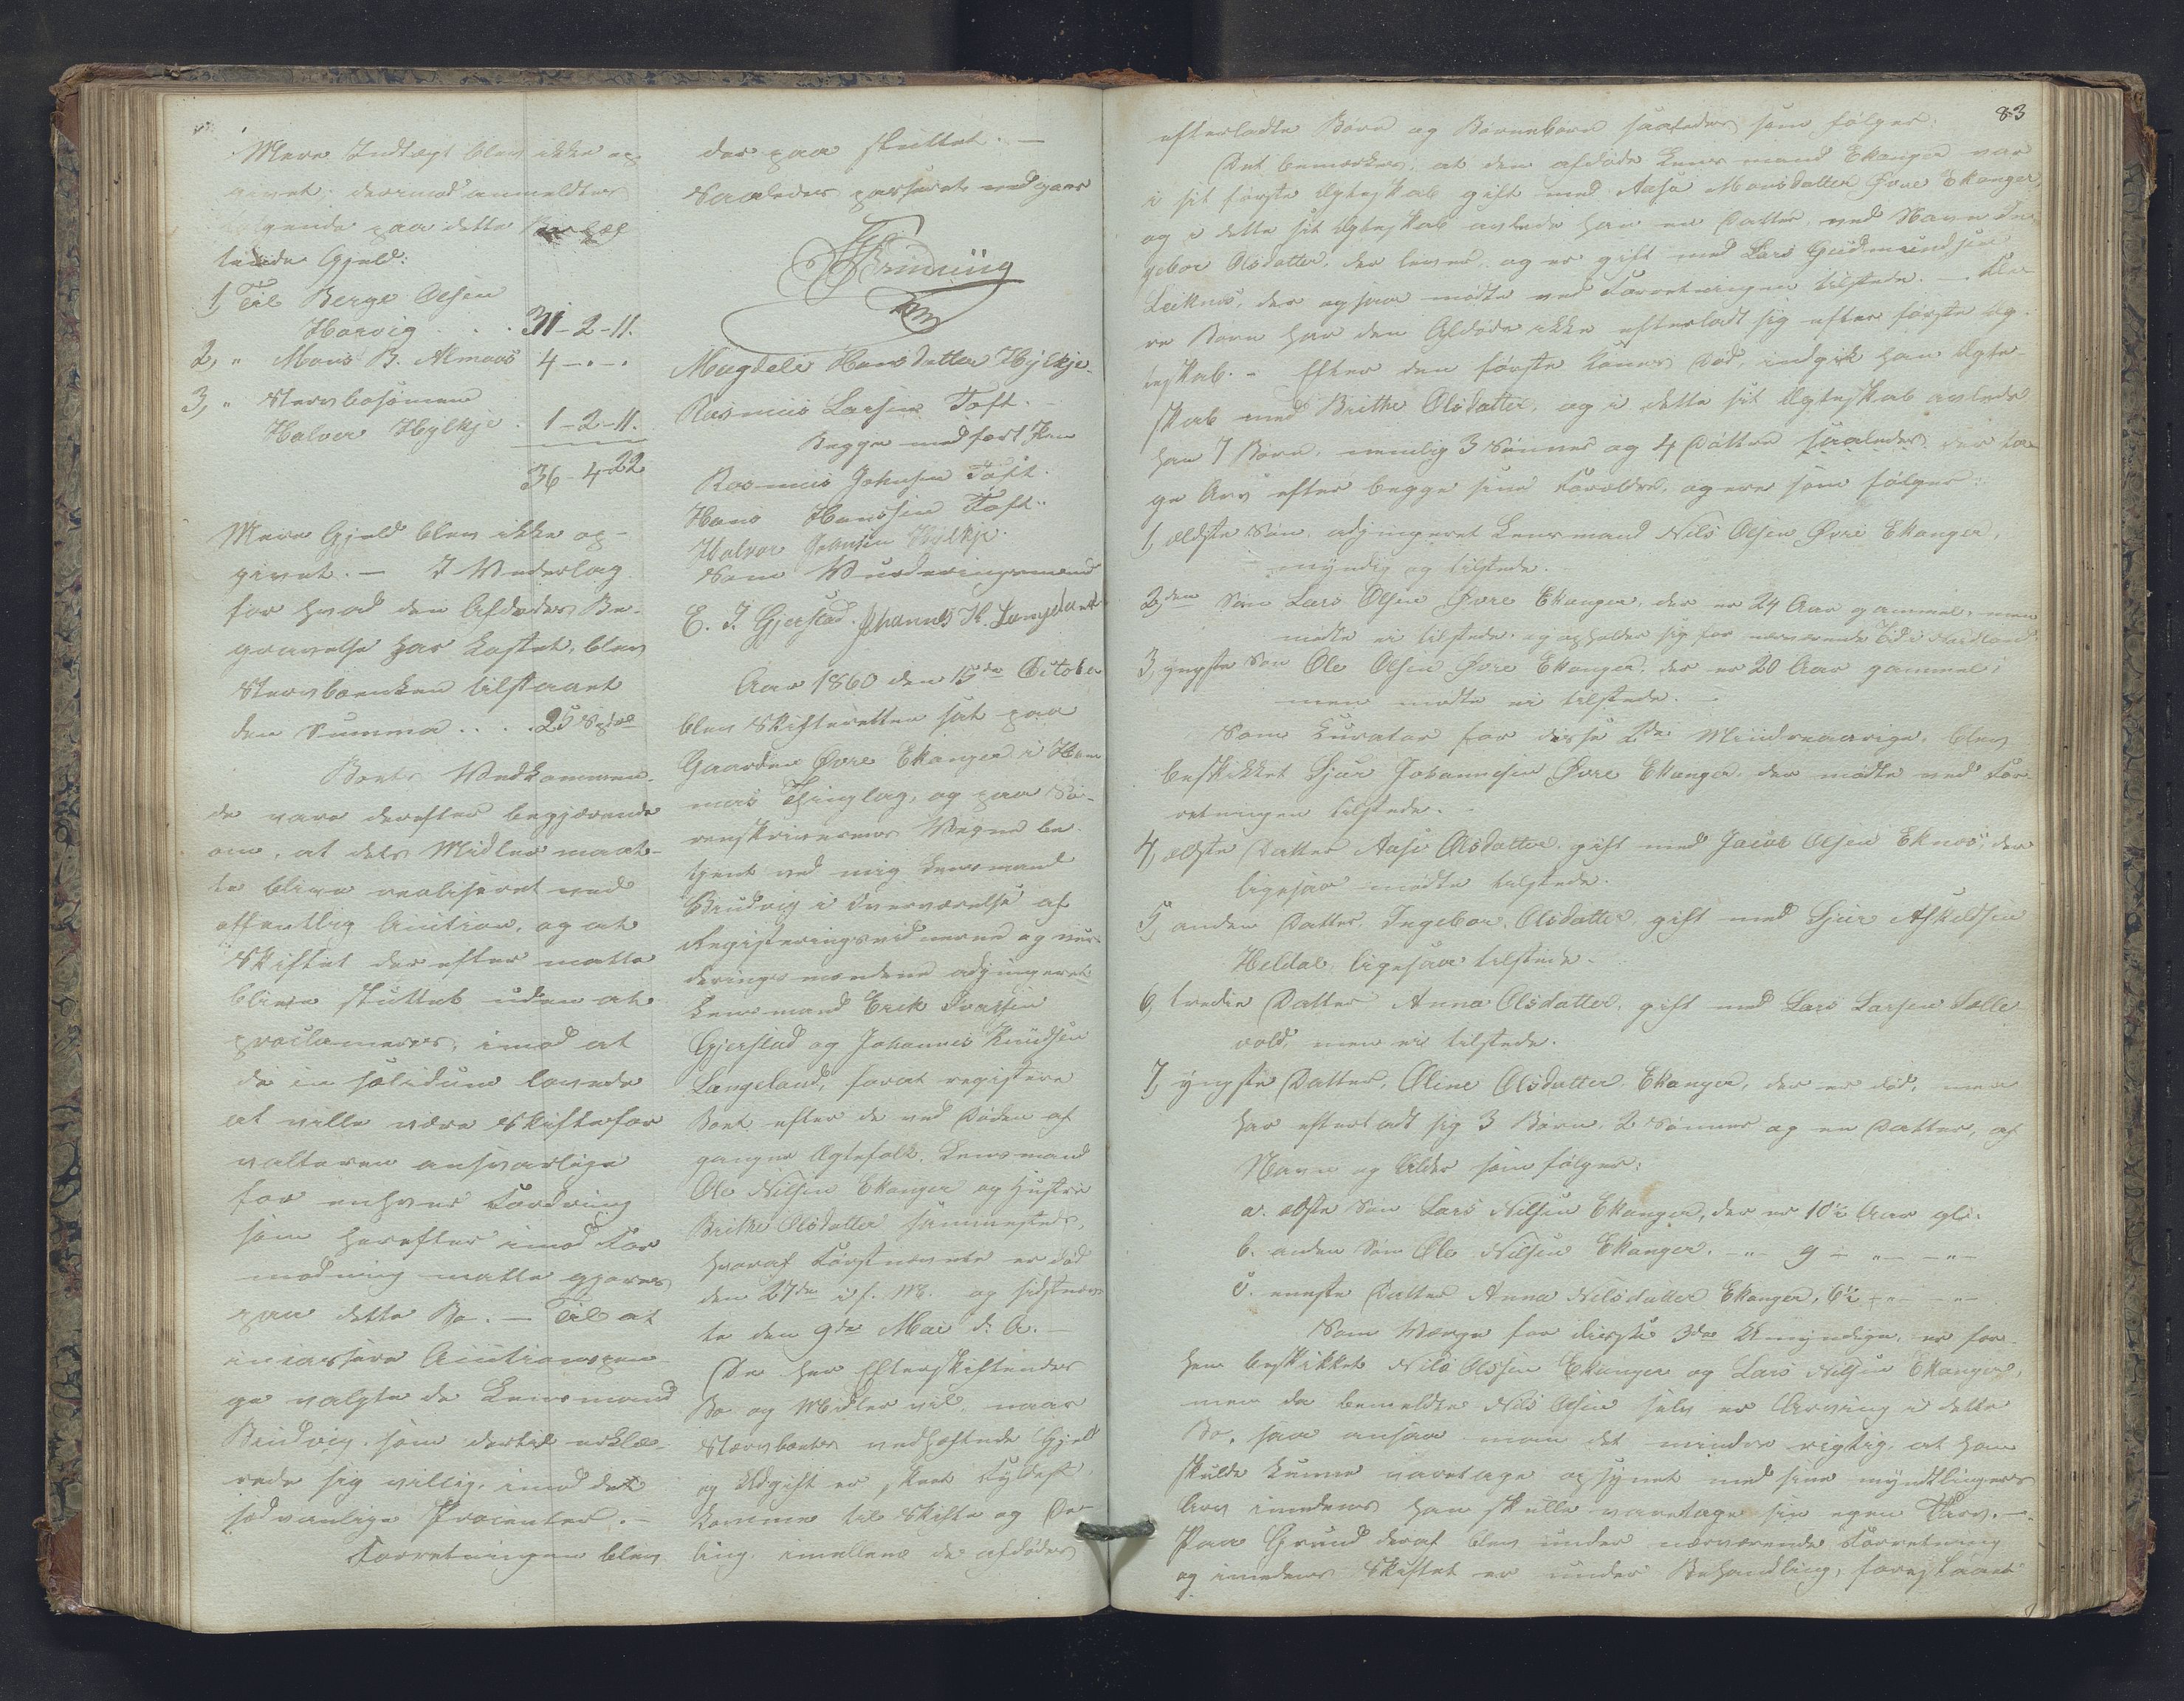 Mere Indtægt blev ikke op-
givet; derimod anmeldtes
følgende paa dette Bo hæf
tende Gjeld:
1, Til Berge Olsen
Horvig . . . 31-2-11.
2, " Mons B. Almaas 4-"-"
3, " Stervbosønnen
Halvor Hylkje . 1-2-11.
36-4-22
Mere Gjeld blev ikke op-
givet. — I Vederlag
for hvad den Afdødes Be-
gravelse har kostet, blev
Stervboenken tilstaaet
den Summa . . . . 25 Spdlr
Boets Vedkommen-
de vare derefter begjærende
om, at dets Midler maat-
te blive realiseret ved
offentlig Auction, og at
Skiftet derefter matte
blive sluttet uden at
proclameres, imod at
de in solidum lovede
at ville være Skiftefor
valteren ansvarlige
for enhver Fordring
som herefter imod For
modning matte gjøres
paa dette Bo. — Til at
incassere Auctionspen-
ge valgte de Lensmand
Brudvig, som dertil erklæ-
rede sig villig, imod det
sædvanlige Procenter. —
Forretningen blev
der paa sluttet. —
Saaledes passeret medgaar
Brudvig
Magdeli Hansdatter Hylkje
Rasmus Larsen Toft.
Begge med ført Pen
Rasmus Johnsen Toft.
Hans Hanssen Toft.
Halvor Johnsen Hylkje.
Som Vurderingsmænd
E. I. Gjerstad. Johannes K. Langeland
Aar 1860 den 15de October
blev Skifteretten sat paa
Gaarden Øvre Ekanger i Ham
mers Thinglag, og paa So-
renskriverens Vegne be-
tjent ved mig Lensmand
Brudvig i Overværelse af
Registeringsvidnerne og vur-
deringsmændene adjungeret
Lensmand Erik Ivarsen
Gjerstad og Johannes Knudsen
Langeland, forat registere
Boet efter de ved Døden af
gangne Ægtefolk, Lensmand
Ole Nilsen Ekanger og Hustrue
Brithe Olsdatter sammesteds,
hvoraf Førstnævnte er død
den 27de i f. M. og sidstnævn
te den 9de Mai d: A. —
De her Efterskiftendes
Bo og Midler vil, naar
Stervboets vedhæftende Gjeld
og Udgift er skeet Fyldest,
komme til Skifte og De-
ling imellem de afdødes
83
efterladte Børn og Børnebørn saaledes som følger:
Det bemærkes, at den afdøde Lensmand Ekanger var
i sit første Ægteskab gift med Aase Monsdatter Øvre Ekanger,
og i dette sit Ægteskab avlede han en Datter ved Navn In
gebor Olsdatter, der lever, og er gift med Lars Gudmundsen
Leiknes, der ogsaa mødte ved Forretningen tilstede. — Fle
re Børn har den Afdøde ikke efterladt sig efter første Æg-
teskab. - Efter den første Kones Død, indgik han Ægte-
skab med Brithe Olsdatter, og i dette sit Ægteskab avlede
han 7 Børn, nemlig 3 Sønner og 4 Døttre saaledes, der ta-
ge Arv efter begge sine Forældre, og ere som følger:
1, ældste Søn, adjungeret Lensmand Nils Olsen Øvre Ekanger,
myndig og tilstede.
2den Søn Lars Olsen Øvre Ekanger, der er 24 Aar gammel, men
mødte ei tilstede, og opholder sig for nærværende Tid i Nordland.
3, yngste Søn Ole Olsen Øvre Ekanger, der er 20 Aar gammel,
men mødte ei tilstede. —
Som Kurator for disse 2de Mindreaarige, blev
beskikket Sjur Johannesen Øvre Ekanger, der mødte ved For-
retningen tilstede. -
4, ældste Datter Aase Olsdatter, gift med Jacob Olsen Eknes, der
ligesaa mødte tilstede.
5, anden Datter, Ingebor Olsdatter, gift med Sjur Askildsen
Heldal, ligesaa tilstede.
6, tredie Datter Anna Olsdatter, gift med Lars Larsen Tælle
vold, men ei tilstede.
7, yngste Datter, Oline Olsdatter Ekanger, der er død, men
har efterladt sig 3 Børn, 2 Sønner og en Datter, af
Navn og Alder som følger:
a. ælste Søn Lars Nilsen Ekanger, der er 10½ Aar gl.
b. anden Søn Ole Nilsen Ekanger, -"- 9 -"- -"-
c. eneste Datter Anna Nilsdatter Ekanger, 6½ -"- -"-
Som Værge for disse 3de Umyndige, er for-
hen beskikket Nils Olsen Ekanger og Lars Nilsen Ekanger,
men da bemeldte Nils Olsen selv er Arving i dette
Bo, saa ansaa man det mindre rigtig, at han
skulde kunne varetage opsynet med sine myndtlingers
Arv imedens han skulle varetage sin egen Arv. —
Paa Grund deraf blev under nærværende Forretning
og imedens Skiftet er under Behandling, foreslaaet